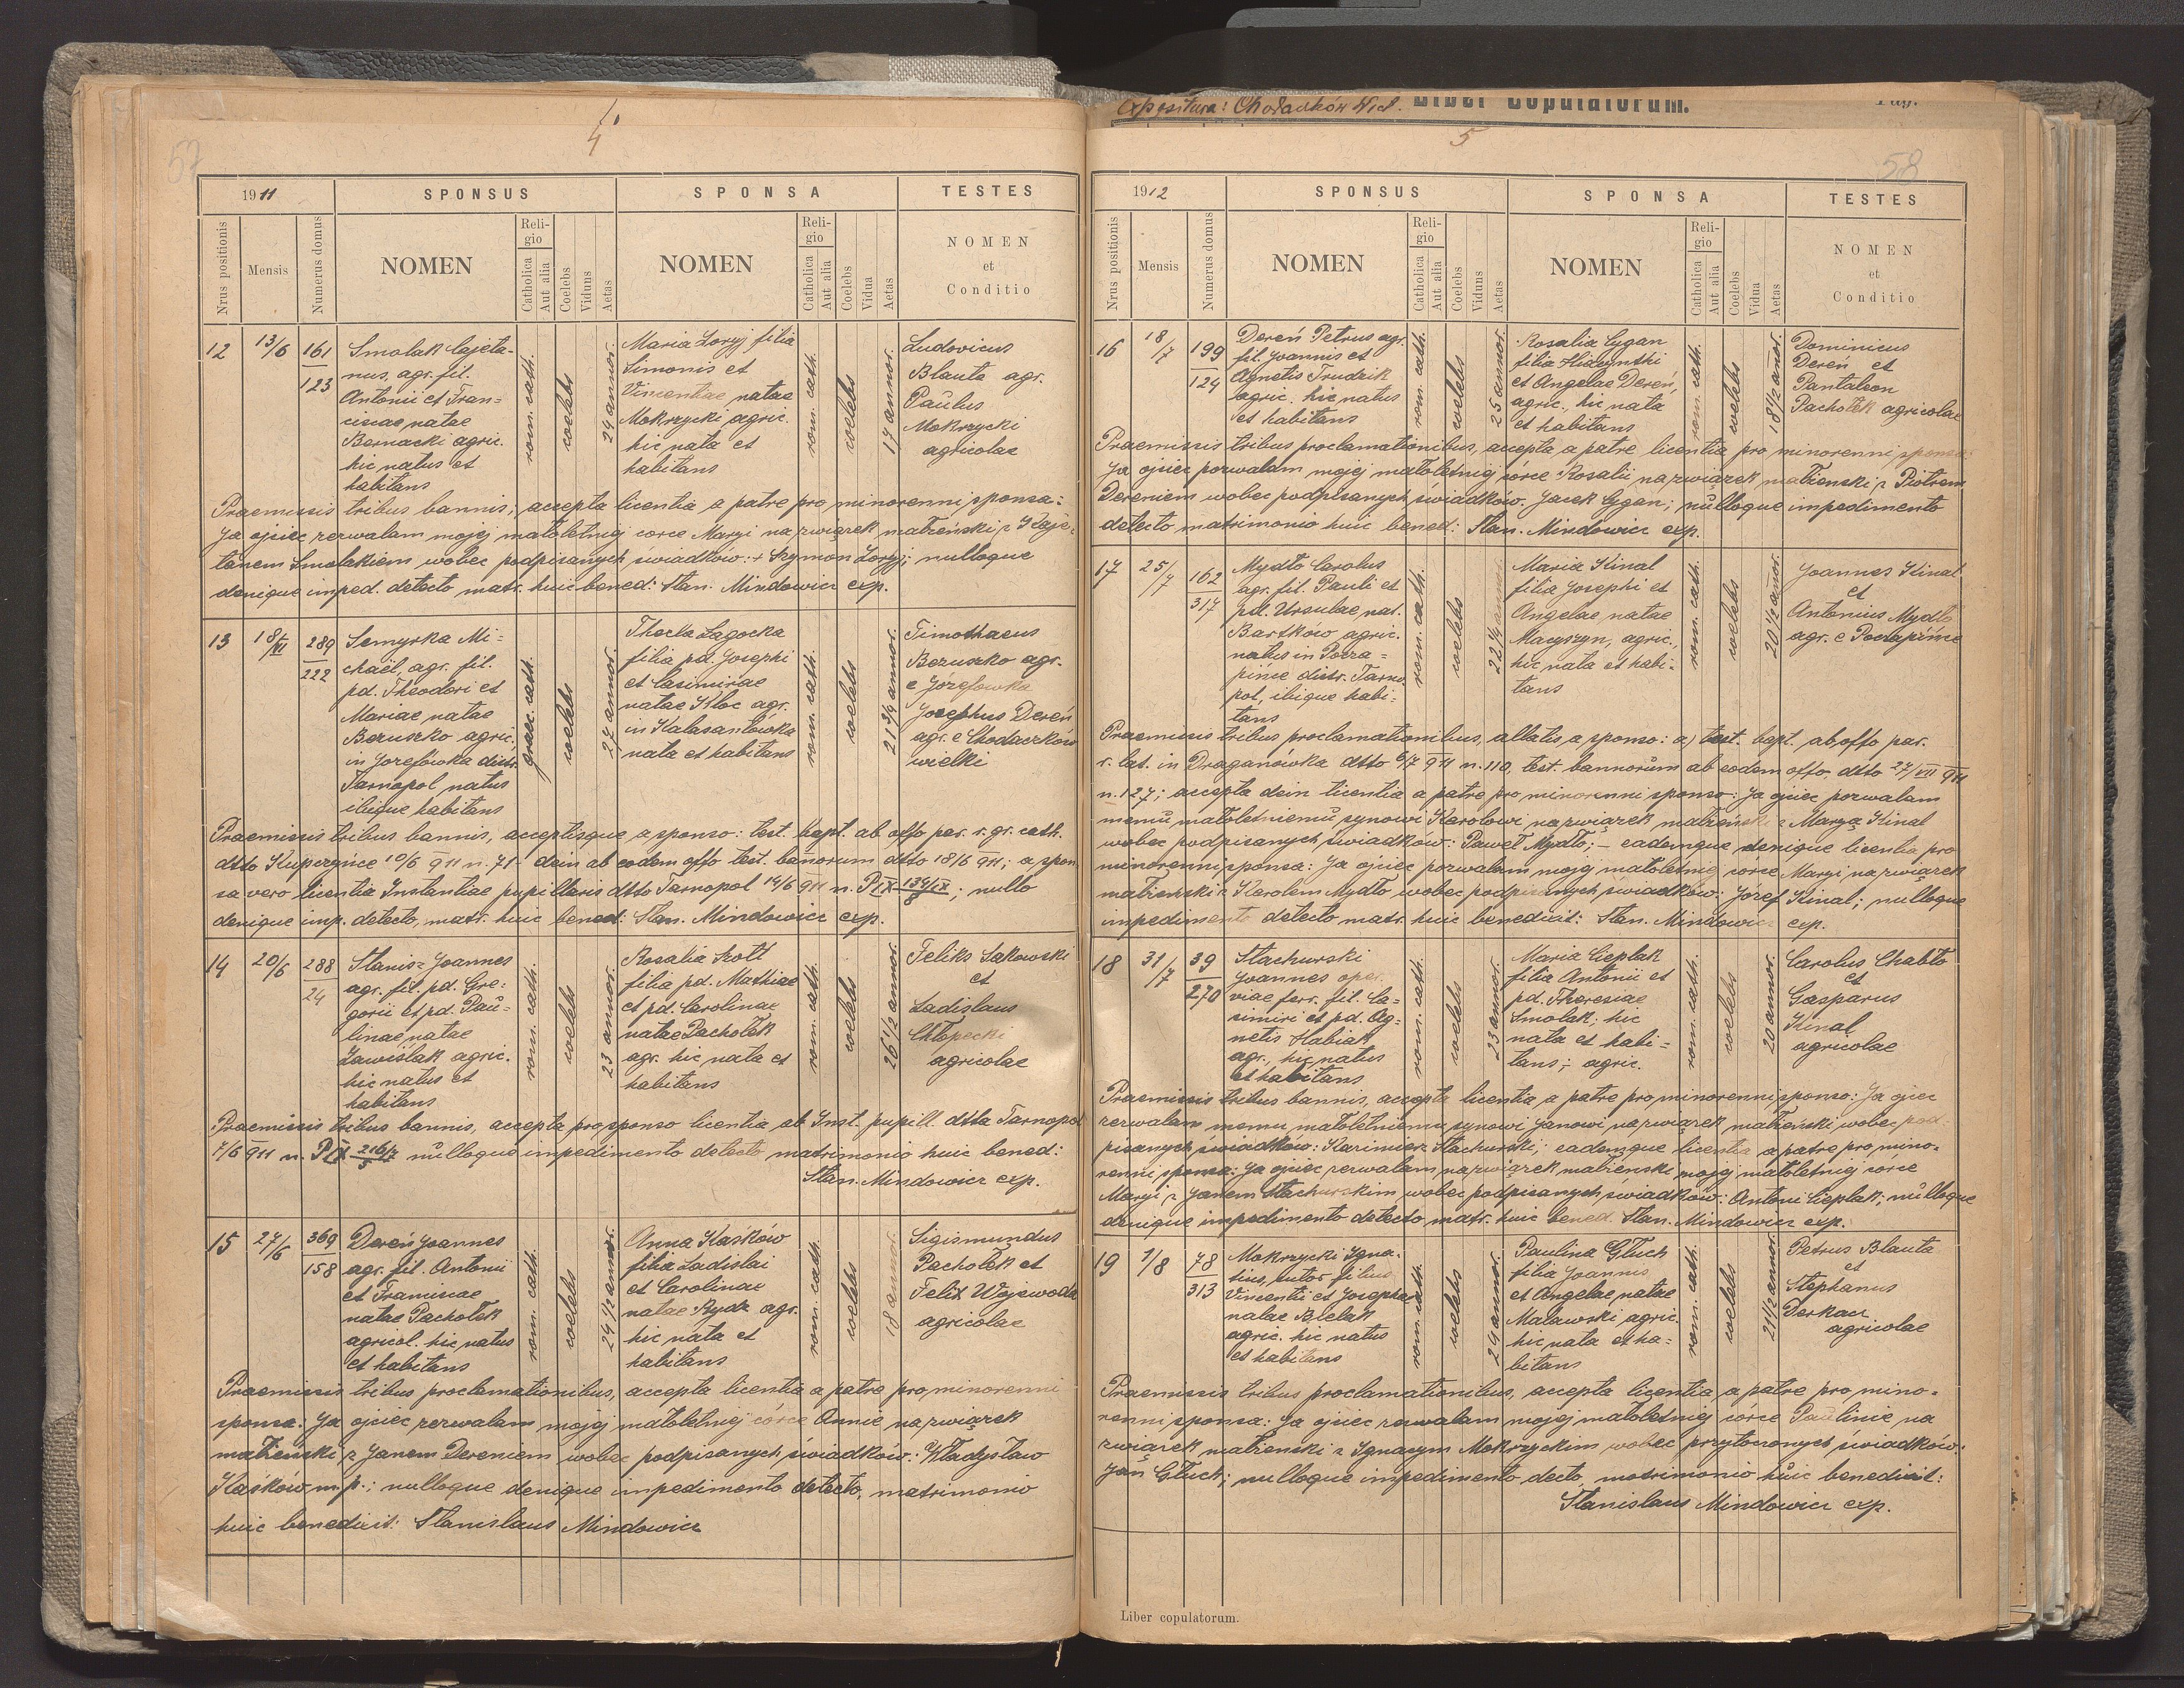 4
57
1911
SPONSUS
SPONSA
TESTES
Nrus positionis
Mensis
Numerus domus
NOMEN
Religio
Catholica
Aut alia
Coelebs
Viduus
Aetas
NOMEN
Religio
Catholica
Aut alia
Coelebs
Vidua
Aetas
NOMEN
et
Conditio
12
13/6
161
123
Smolak Cajeta-
nus, agr. fil.
Antonii et Fran=
ciscae natae
Bernacki agric.
hic natus et
habitans
rom. cath.
coelebs
24 annor.
Maria Zoryj filia
Simonis et
Vincentiae natae
Mokrzycki agric.
hic nata et
habitans
rom. cath.
coelebs
17 annor.
Ludovicus
Blauta agr.
Paulus
Mokrzycki
agricolae
Praemissis tribus bannis, accepta licentia a patre pro minorenni sponsa:
Ja ojciec zezwalam mojej małoletniej corce Maryi na związek małżeński z Kaje-
tanem Smolakiem wobec podpisanych świadków: + Szymon Zoryj; nulloque
denique imped. detecto matr. huic bened: Stan. Mindowicz exp.
13
18/VI
289
222
Semyrka Mi-
chaël, agr. fil.
pd. Theodori et
Mariae natae
Beruszko agric.
in Józefówka distr.
Tarnopol natus
ibique habitans
graec. cath.
coelebs
27 annor.
Thecla Zagocka
filia pd. Josephi
et Casimirae
natae Kloc agr.
in Kalasantówka
nata et habitans
rom. cath.
coelebs
21 3/4 annor.
Timothaeus
Beruszko agr.
e Józefowka
Josephus Dereń
agr. e Chodaczków
wielki
Praemissis tribus bannis, acceptisque a sponso: test. bapt. ab offo par. r. gr. cath.
dtto Kupczyńce 10/6 911 n. 71 - dein ab eodem offo test. banorum dtto 18/6 911; a spon
sa vero licentia Instantiae pupillaris dtto Tarnopol 14/6 911 n. P IX 134/IX 8; nullo
denique imp. detecto, matr. huic bened: Stan. Mindowicz exp.
14
20/6
288
24
Stanisz Joannes
agr. fil. pd. Gre-
gorii et pd. Pau-
linae natae
Zawiślak agric.
hic natus et
habitans
rom. cath.
coelebs
23 annor.
Rosalia Szott
filia pd. Mathiae
et pd. Carolinae
natae Pachołek
agr. hic nata et
habitans
rom. cath.
coelebs
26 1/2 annor.
Feliks Sakowski
et
Ladislaus
Chłopecki
agricolae
Praemissis tribus bannis, accepta pro sponso licentia ab Inst. pupill. dtta Tarnopol
7/6 911 n. P IX 216/7 5 nulloque impedimento detecto matrimonio huic bened:
Stan. Mindowicz exp.
15
27/6
369
158
Dereń Joannes
agr. fil. Antonii
et Franciscae
natae Pachołek
agricol. hic natus
et habitans
rom. cath.
coelebs
24 1/2 annor.
Anna Kaśków
filia Ladislai
et Carolinae
natae Rydz agr.
hic nata et
habitans
rom. cath.
coelebs
18 annor.
Sigismundus
Pachołek et
Felix Wojewoda
agricolae
Praemissis tribus proclamationibus, accepta licentia a patre pro minorenni
sponsa: Ja ojciec zezwalam mojej małoletniej córce Annie na związek
małżeński z Janem Dereniem wobec podpisanych świadków: Władysław
Kaśków mp.; nulloque denique impedimento detecto, matrimonio
huic benedixit: Stanislaus Mindowicz
Expositura: Chodaczków Wiel.
Liber Copulatorum.
Pag.
5
58
1912
SPONSUS
SPONSA
TESTES
Nrus positionis
Mensis
Numerus domus
NOMEN
Religio
Catholica
Aut alia
Coelebs
Viduus
Aetas
NOMEN
Religio
Catholica
Aut alia
Coelebs
Vidua
Aetas
NOMEN
et
Conditio
16
18/7
199
124
Dereń Petrus agr.
fil. Joannis et
Agnetis Trudzik
agric. hic natus
et habitans
rom. cath.
coelebs
25 annor.
Rosalia Cygan
filia Hiacynthi
et Angelae Dereń,
agric., hic nata
et habitans
rom. cath.
coelebs
18 1/2 annor.
Dominicus
Dereń et
Pantaleon
Pachołek agricolae
Praemissis tribus proclamationibus, accepta a patre licentia pro minorenni sponsa:
Ja ojciec pozwalam mojej małoletniej córce Rosalii na związek małżenski z Piotrem
Dereniem wobec podpisanych świadków. Jacek Cygan; nulloque impedimento
detecto matrimonio huic bened: Stan. Mindowicz exp.
17
25/7
162
317
Mydło Carolus
agr. fil. Pauli et
pd. Ursulae nat.
Bartków agric.
natus in Pocza-
pińce distr. Tarno-
pol, ibique habi-
tans
rom. cath.
coelebs
22 1/4 annor.
Maria Kinal
filia Josephi et
Angelae natae
Macyszyn, agric.,
hic nata et habi-
tans
rom. cath.
coelebs
20 1/2 annor.
Joannes Kinal
et
Antonius Mydło
agr. e Poczapińce
Praemissis tribus proclamationibus, allatis a sponso: a) test. bapt. ab offo par.
r. lat. in Draganówka dtto 6/7 911 n. 110, test. bannorum ab eodem offo, dtto 27/VII 911
n. 127; accepta dein licentia a patre pro minorenni sponso: Ja ojciec pozwalam
memu małoletniemu synowi Karolowi na związek małżeński z Maryą Kinal
wobec podpisanych świadków: Paweł Mydło; - eademque denique licentia pro
minorenni sponsa: Ja ojciec pozwalam mojej małoletniej córce Maryi na związek
małżeński z Karolem Mydło wobec podpisanych świadków: Józef Kinal; nulloque
impedimento detecto matr. huic benedixit: Stan. Mindowicz exp.
18
31/7
39
270
Stachurski
Joannes oper.
viae ferr. fil. Ca-
simiri et pd. Ag-
netis Habiak
agr., hic natus
et habitans
rom. cath.
coelebs
23 annor.
Maria Cieplak
filia Antonii et
pd. Theresiae
Smolak; hic
nata et habi-
tans; agric.
rom. cath.
coelebs
20 annor.
Carolus Chabło
et
Gasparus
Kinal
agricolae
Praemissis tribus bannis, accepta licentia a patre pro minorenni sponso: Ja ojciec
zezwalam memu małoletniemu synowi Janowi na związek małżeński wobec pod-
pisanych świadków: Kazimierz Stachurski; eademque licentia a patre pro mino-
renni sponsa: Ja ojciec zezwalam na związek małżenski mojej małoletniej córce
Maryi z Janem Stachurskim wobec podpisanych świadków: Antoni Cieplak; nulloque
denique impedimento detecto matr. huic bened. Stan. Mindowicz exp.
19
1/8
78
313
Mokrzycki Igna-
tius, sutor filius
Vincentii et Josephae
natae Bielak
agric. hic natus
et habitans
rom. cath.
coelebs
24 annor.
Paulina Głuch
filia Joannis
et Angelae natae
Malawski, agric.
hic nata et ha-
bitans
rom. cath.
coelebs
21 1/2 annor.
Petrus Blauta
et
Stephanus
Derkacz
agricolae
Praemissis tribus proclamationibus, accepta licentia a patre pro mino-
renni sponsa: Ja ojciec zezwalam mojej małoletniej córce Paulinie na
związek małżenski z Ignacym Mokrzyckim wobec przytoczonych świadków:
Jan Głuch; nulloque impedimento decto, matrimonio huic benedixit:
Stanislaus Mindowicz exp.
Liber copulatorum.